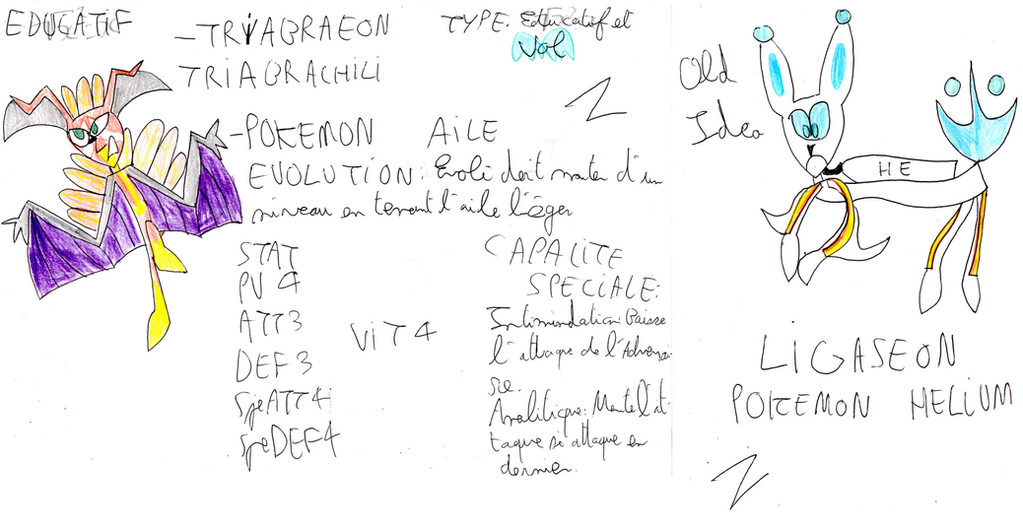 EDUCATIF
- TRYABRAEON
TRIABRACHILI
TYPE. Educatif et
Vol
- POKEMON AILE
EVOLUTION: Evoli doit monter d'un
niveau en tenant l'aile l'éger
STAT
PV 4
ATT3
DEF3
SpeATT4
SpeDEF4
ViT4
CAPALITE
SPECIALE:
Intimindation: Baisse
l'attaque de l'Adversai
re.
Analitique: Monte l'at
taque si attaque en
dernier.
Old
Idea
HE
LIGASEON
POKEMON HELIUM